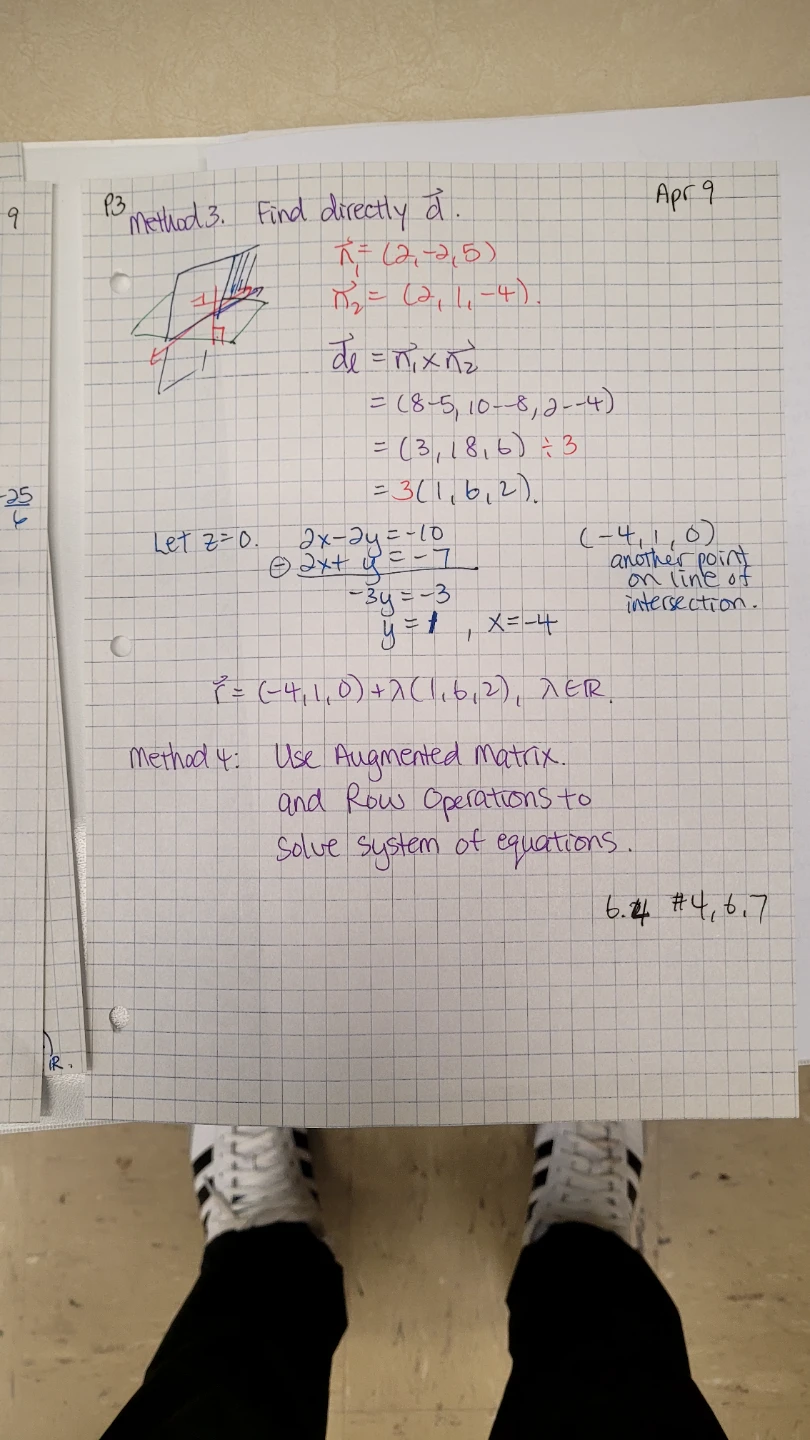 9
-25
6
R.
P3
Apr 9
Method 3. Find directly d⃗.
n⃗₁ = (2,-2,5)
n⃗₂ = (2, 1, -4).
d⃗ℓ = n⃗₁ × n⃗₂
= (8-5, 10--8, 2--4)
= (3, 18, 6) ÷ 3
= 3(1, 6, 2).
Let z=0. 2x-2y = -10
⊖ 2x+ y = -7
-3y = -3
y = 1 , x = -4
(-4, 1, 0)
another point
on line of
intersection.
r⃗ = (-4,1,0) + λ(1,6,2), λ∈ℝ.
Method 4: Use Augmented Matrix.
and Row Operations to
solve system of equations.
6.4 #4, 6, 7